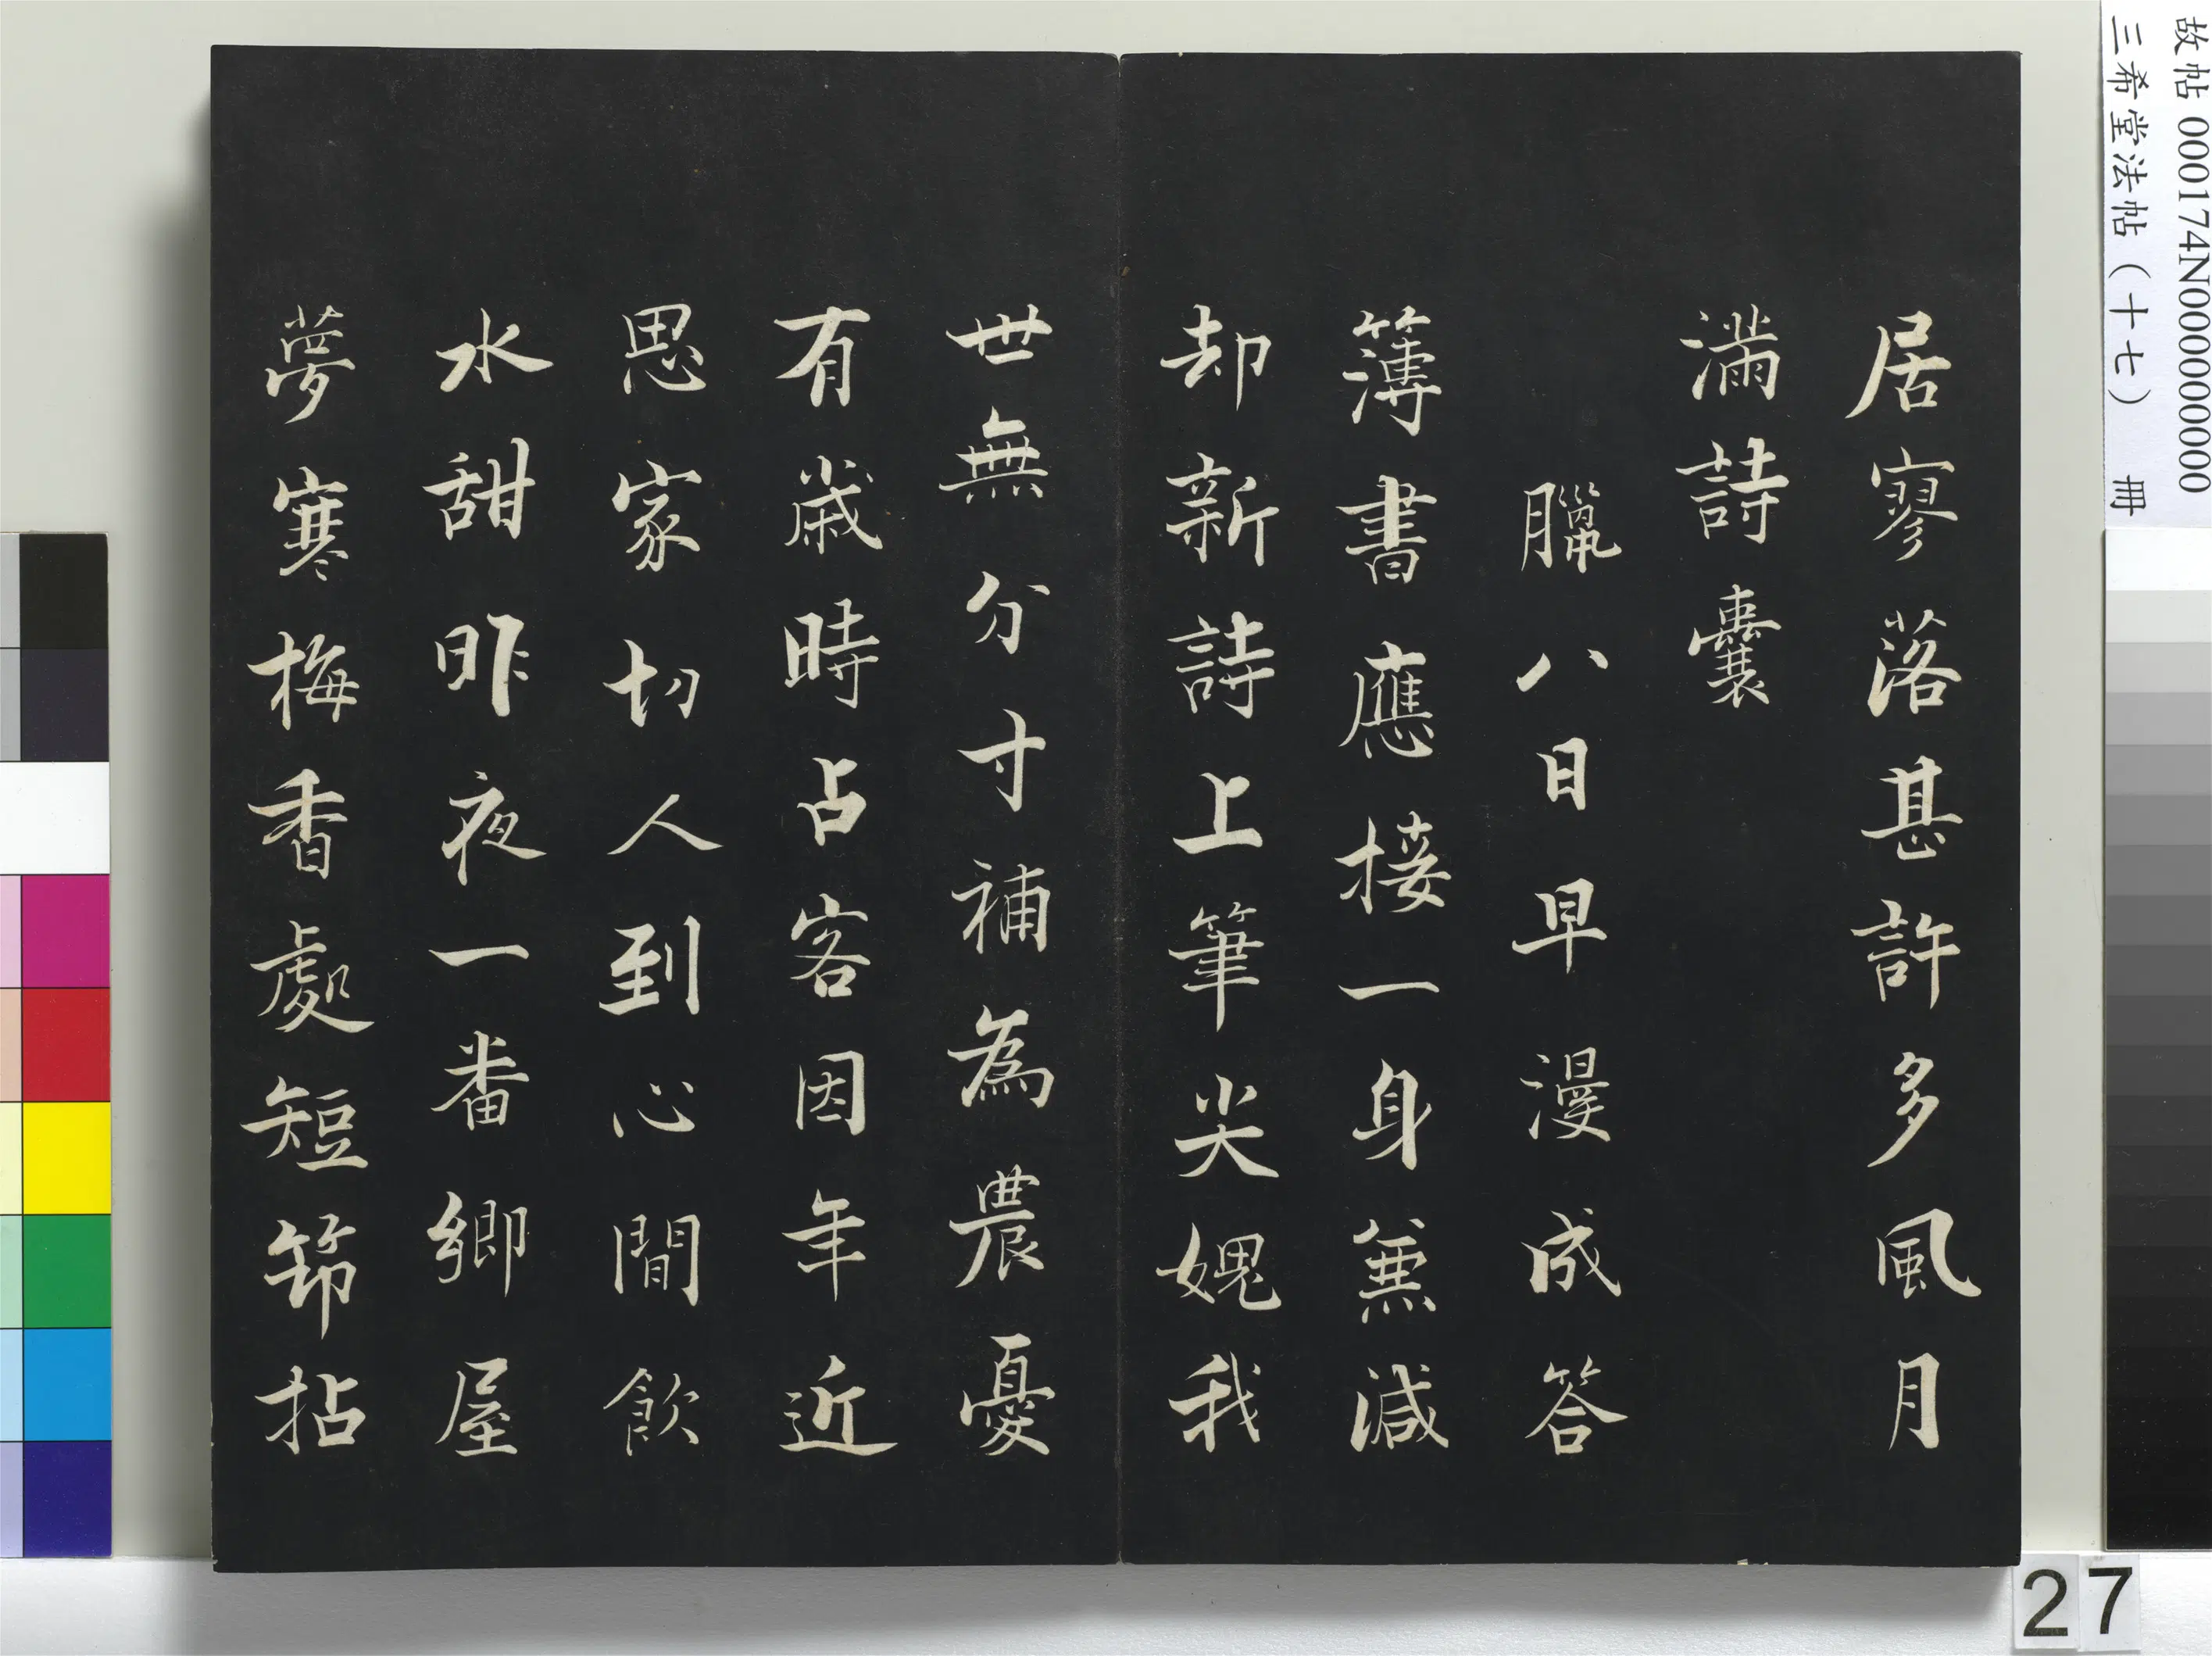 故帖 000174N000000000
三希堂法帖（十七） 冊
居寥落甚許多風月
滿詩囊
臘八日早漫成答
簿書應接一身兼減
却新詩上筆尖媿我
世無分寸補為農憂
有歲時占客因年近
思家切人到心間飲
水甜昨夜一番鄉屋
夢寒梅香處短筇拈
27